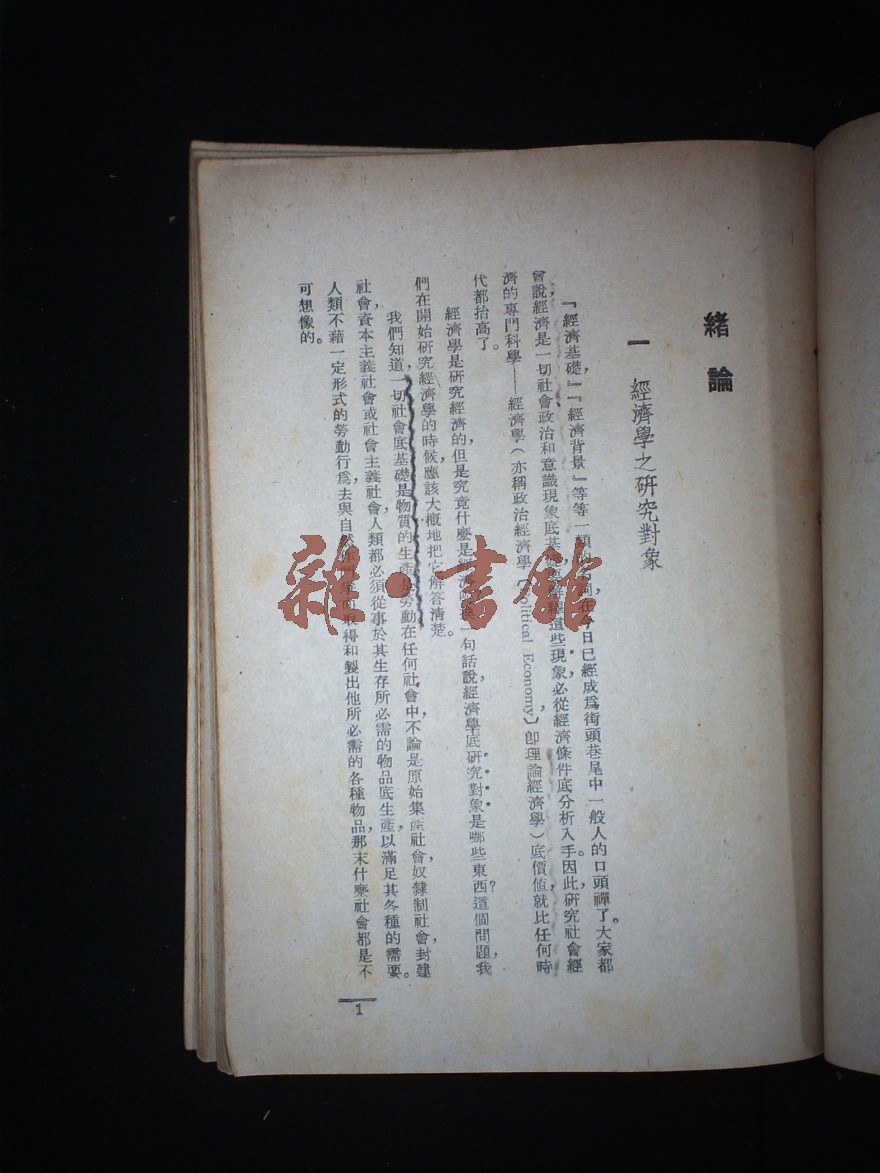 緒論
一 經濟學之研究對象
『經濟基礎』『經濟背景』等等一類的名詞，在今日已經成爲街頭巷尾中一般人的口頭禪了。大家都
曾說，經濟是一切社會政治和意識現象底基礎，要解釋這些現象必從經濟條件底分析入手。因此，研究社會經
濟的專門科學——經濟學（亦稱政治經濟學〔Political Economy〕即理論經濟學）底價值，就比任何時
代都抬高了。
經濟學是研究經濟的，但是究竟什麼是經濟？換一句話說，經濟學底研究對象是哪些東西？這個問題，我
們在開始研究經濟學的時候，應該大概地把它解答清楚。
我們知道，一切社會底基礎是物質的生產勞動，在任何社會中，不論是原始集產社會，奴隸制社會，封建
社會，資本主義社會或社會主義社會，人類都必須從事於其生存所必需的物品底生產，以滿足其各種的需要。
人類不藉一定形式的勞動行爲，去與自然取得和製出他所必需的各種物品，那末什麼社會都是不
可想像的。
1
雜·書館